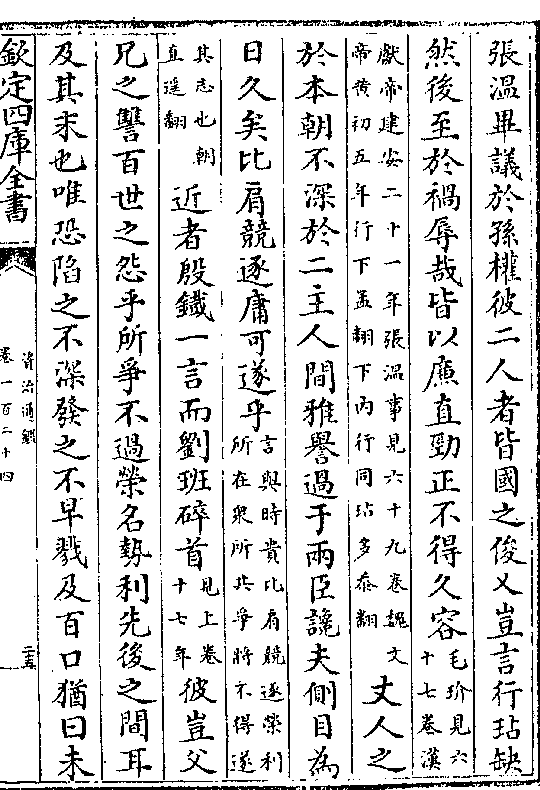 張溫畢議於孫權彼二人者皆國之俊乂豈言行玷缺
然後至於禍辱哉皆以廉直勁正不得久容毛玠見六十七卷漢
獻帝建安二十一年張溫事見六十九卷魏文帝黄初五年行下孟翻下內行同玷多忝翻丈人之
於本朝不深於二主人間雅譽過于兩臣讒夫側目為
日久矣比肩競逐庸可遂乎言與時貴比肩競逐榮利所在衆所共爭將不得遂
其志也朝直遥翻近者殷鐵一言而劉班碎首見上卷十七年彼豈父
兄之讐百世之怨乎所爭不過榮名勢利先後之間耳
及其末也唯恐陷之不深發之不早戮及百口猶曰未
欽定四庫全書
資治通鑑
卷一百二十四
二十五